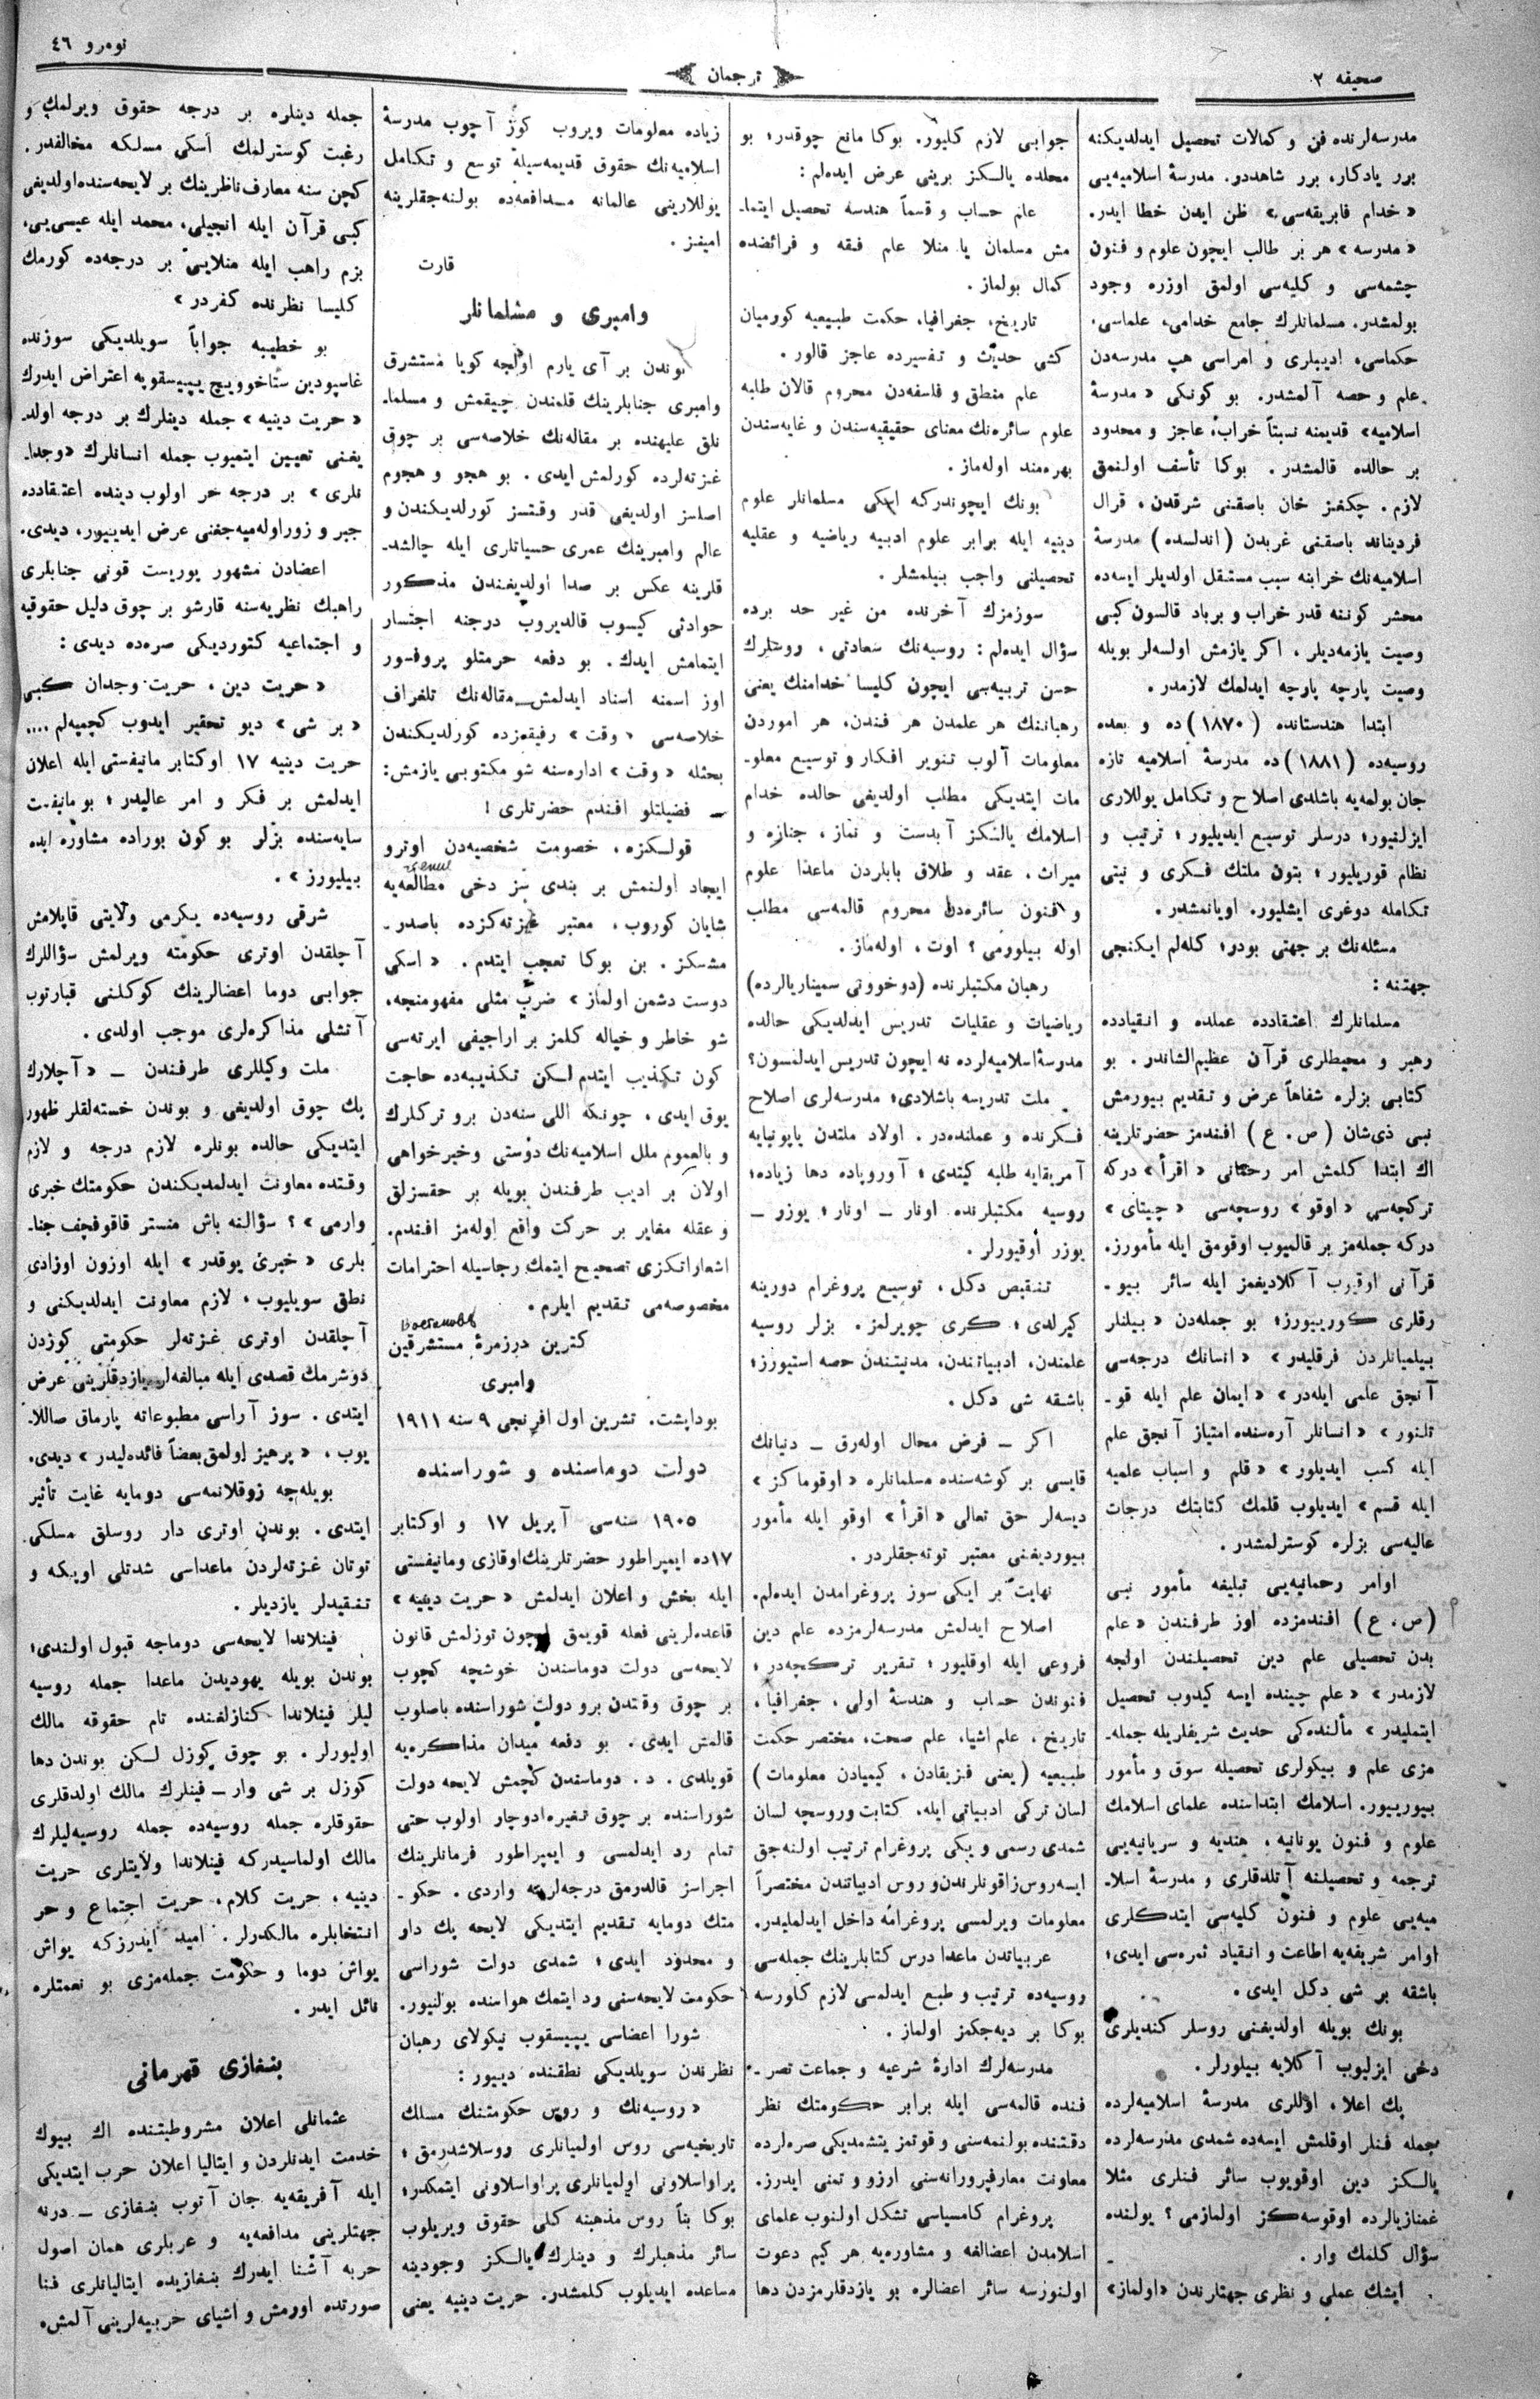 صحيفه ٢
ترجمان
نومرو ٤٦
مدرسه‌لرنده فن و كمالات تحصيل ايدلديكنه
برر يادكار، برر شاهددر. مدرسهٔ اسلاميه‌يى
« خدام فابريقه‌سى » ظن ايدن خطا ايدر.
« مدرسه » هر بر طالب ايچون علوم و فنون
چشمه‌سى و كليه‌سى اولمق اوزره وجود
بولمشدر. مسلمانلرك جامع خدامى، علماسى،
حكماسى، اديبلرى و امراسى هپ مدرسه‌دن
علم و حصه آلمشدر. بو كونكى « مدرسهٔ
اسلاميه » قديمنه نسبتاً خراب، عاجز و محدود
بر حالده قالمشدر. بوكا تأسف اولنمق
لازم. چنكغز خان باصقنى شرقدن، قرال
فرديناند باصقنى غربدن (اندلسده) مدرسهٔ
اسلاميه‌نك خرابنه سبب مستقل اولديلر ايسه‌ده
محشر كوننه قدر خراب و برباد قالسون كبى
وصيت يازمه‌ديلر، اكر يازمش اولسه‌لر بويله
وصيت پارچه پارچه ايدلمك لازمدر.
ابتدا هندستانده (١٨٧٠)ده و بعده
روسيه‌ده (١٨٨١)ده مدرسهٔ اسلاميه تازه
جان بولمه‌يه باشلدى اصلاح و تكامل يوللارى
ايزلنيور؛ درسلر توسيع ايديليور؛ ترتيب و
نظام قوريليور؛ بتون ملتك فكرى و نيتى
تكامله دوغرى ايشليور. اويانمشدر.
مسئله‌نك بر جهتى بودر؛ كله‌لم ايكنجى
جهتنه :
مسلمانلرك اعتقادده عملده و انقيادده
رهبر و محيطلرى قرآن عظيم‌الشاندر. بو
كتابى بزلره شفاهاً عرض و تقديم بيورمش
نبى ذى‌شان (ص. ع) افندمز حضرتلرينه
اك ابتدا كلمش امر رحمانى « اقرأ » دركه
تركچه‌سى « اوقو » روسچه‌سى « چيتاى »
دركه جمله‌مز بر قالميوب اوقومق ايله مأمورز.
قرآنى اوقورب آكلاديغمز ايله سائر بيو-
رقلرى كورييورز؛ بو جمله‌دن « بيلنلر
بيلميانلردن فرقليدر » « انسانك درجه‌سى
آنجق علمى ايله‌در » « ايمان علم ايله قو-
تلنور » « انسانلر آره‌سنده امتياز آنجق علم
ايله كسب ايديلور » « قلم و اسباب علميه
ايله قسم » ايديلوب قلمك كتابتك درجات
عاليه‌سى بزلره كوسترلمشدر.
اوامر رحمانيه‌يى تبليغه مأمور نبى
(ص. ع) افندمزده اوز طرفندن « علم
بدن تحصيلى علم دين تحصيلندن اولجه
لازمدر » « علم چينده ايسه كيدوب تحصيل
ايتمليدر » مألنده‌كى حديث شريفلريله جمله-
مزى علم و بيكولرى تحصيله سوق و مأمور
بيورييور. اسلامك ابتداسنده علماى اسلامك
علوم و فنون يونانيه، هنديه و سريانيه‌يى
ترجمه و تحصيلنه آتلدقلرى و مدرسهٔ اسلا-
ميه‌يى علوم و فنون كليه‌سى ايتدكلرى
اوامر شريفه‌يه اطاعت و انقياد ثمره‌سى ايدى؛
باشقه بر شى دكل ايدى.
بونك بويله اولديغنى روسلر كنديلرى
دخى ايزليوب آكلايه بيلورلر.
پك اعلا، اوللرى مدرسهٔ اسلاميه‌لرده
جمله فنلر اوقلمش ايسه‌ده شمدى مدرسه‌لرده
يالكز دين اوقويوب سائر فنلرى مثلا
غمنازيالرده اوقوسه‌كز اولمازمى؟ يولنده
سؤال كلمك وار.
ايشك عملى و نظرى جهتلرندن « اولماز »
جوابى لازم كليور. بوكا مانع چوقدر؛ بو
محلده يالكز برينى عرض ايده‌لم :
علم حساب و قسماً هندسه تحصيل ايتما-
مش مسلمان يا منلا علم فقه و فرائضده
كمال بولماز.
تاريخ، جغرافيا، حكمت طبيعيه كورميان
كشى حديث و تفسيرده عاجز قالور.
علم منطق و فلسفه‌دن محروم قالان طلبه
علوم سائره‌نك معناى حقيقيه‌سندن و غايه‌سندن
بهره‌مند اوله‌ماز.
بونك ايچوندركه اسكى مسلمانلر علوم
دينيه ايله برابر علوم ادبيه رياضيه و عقليه
تحصيلنى واجب بيلمشلر.
سوزمزك آخرنده من غير حد برده
سؤال ايده‌لم : روسيه‌نك سعادتى، روسلرك
حسن تربيه‌سى ايچون كليسا خدامنك يعنى
رهباننك هر علمدن هر فندن، هر اموردن
معلومات آلوب تنوير افكار و توسيع معلو-
مات ايتديكى مطلب اولديغى حالده خدام
اسلامك يالكز آبدست و نماز، جنازه و
ميراث، عقد و طلاق بابلردن ماعدا علوم
و فنون سائره‌دن محروم قالمه‌سى مطلب
اوله بيلورمى؟ اوت، اوله‌ماز.
رهبان مكتبلرنده (دوخوونى سمينارياﻟرده)
رياضيات و عقليات تدريس ايدلديكى حالده
مدرسهٔ اسلاميه‌لرده نه ايچون تدريس ايدلمسون؟
ملت تدريسه باشلادى؛ مدرسه‌لرى اصلاح
فكرنده و عملنده‌در. اولاد ملتدن ياپونيايه
آمريقايه طلبه كيتدى؛ آوروپاده دها زياده؛
روسيه مكتبلرنده اونار ــ اونار؛ يوزر ــ
يوزر اوقيورلر.
تنقيص دكل، توسيع پروغرام دورينه
كيرلدى؛ كرى چويرلمز. بزلر روسيه
علمندن، ادبياتندن، مدنيتندن حصه استيورز؛
باشقه شى دكل.
اكر ــ فرض محال اوله‌رق ــ دنيانك
قايسى بر كوشه‌سنده مسلمانلره « اوقوماكز »
ديسه‌لر حق تعالى « اقرأ » اوقو ايله مأمور
بيورديغنى معتبر توته‌جقلردر.
نهايت بر ايكى سوز پروغرامدن ايده‌لم.
اصلاح ايدلمش مدرسه‌لرمزده علم دين
فروعى ايله اوقليور؛ تقرير تركچه‌در؛
فنوندن حساب و هندسهٔ اولى، جغرافيا،
تاريخ، علم اشيا، علم صحت، مختصر حكمت
طبيعيه (يعنى فزيقادن، كيميادن معلومات)
لسان تركى ادبياتى ايله، كتابت و روسچه لسان
شمدى رسمى و يكى پروغرام ترتيب اولنه‌جق
ايسه روس زاقونلرندن و روس ادبياتندن مختصراً
معلومات ويرلمسى پروغرامه داخل ايدلمليدر.
عربياتدن ماعدا درس كتابلرينك جمله‌سى
روسيه‌ده ترتيب و طبع ايدلمسى لازم كلورسه
بوكا بر ديه‌جكمز اولماز.
مدرسه‌لرك ادارهٔ شرعيه و جماعت تصر-
فنده قالمه‌سى ايله برابر حكومتك نظر
دقتنده بولنمه‌سنى و قوتمز يتشمديكى صره‌لرده
معاونت معارفپرورانه‌سنى ارزو و تمنى ايدرز.
پروغرام كامسياسى تشكل اولنوب علماى
اسلامدن اعضالغه و مشاوره‌يه هر كيم دعوت
اولنورسه سائر اعضالره بو يازدقلرمزدن دها
زياده معلومات ويروب كوز آچوب مدرسهٔ
اسلاميه‌نك حقوق قديمه‌سيله توسع و تكامل
يوللارينى عالمانه مدافعه‌ده بولنه‌جقلرينه
امينز.
قارت
وامبرى و مسلمانلر
بوندن بر آى يارم اولجه كويا مستشرق
وامبرى جنابلرينك قلمندن چيقمش و مسلما-
نلق عليهنده بر مقاله‌نك خلاصه‌سى بر چوق
غزته‌لرده كورلمش ايدى. بو هجو و هجوم
اصلسز اولديغى قدر وقتسز كورلديكندن و
عالم وامبرينك عمرى حسياتلرى ايله چالشد-
قلرينه عكس بر صدا اولديغندن مذكور
حوادثى كيسوب قالديروب درجنه اجتسار
ايتمامش ايدك. بو دفعه حرمتلو پروفسور
اوز اسمنه اسناد ايدلمش مقاله‌نك تلغراف
خلاصه‌سى « وقت » رفيقمزده كورلديكندن
بحثله « وقت » اداره‌سنه شو مكتوبى يازمش:
ــ فضيلتلو افندم حضرتلرى !
قولكزه، خصومت شخصيه‌دن اوترو
ايجاد اولنمش بر بندى سز دخى مطالعه‌يه
شايان كوروب، معتبر غزته‌كزده باصدر-
مشسكز. بن بوكا تعجب ايتدم. « اسكى
دوست دشمن اولماز » ضرب مثلى مفهومنجه،
شو خاطر و خياله كلمز بر اراجيفى ايرته‌سى
كون تكذيب ايتدم لكن تكذيبه‌ده حاجت
يوق ايدى، چونكه اللى سنه‌دن برو تركلرك
و بالعموم ملل اسلاميه‌نك دوستى و خيرخواهى
اولان بر اديب طرفندن بويله بر حقسزلق
و عقله مغاير بر حركت واقع اوله‌مز افندم.
اشعاراتكزى تصحيح ايتمك رجاسيله احترامات
مخصوصه‌مى تقديم ايلرم.
كمترين درزمرهٔ مستشرقين
وامبرى
بوداپشت. تشرين اول افرنجى ٩ سنه ١٩١١
دولت دوماسنده و شوراسنده
١٩٠٥ سنه‌سى آپريل ١٧ و اوكتابر
١٧ده ايمپراطور حضرتلرينك اوقازى و مانيفستى
ايله بخش و اعلان ايدلمش « حريت دينيه »
قاعده‌لرينى فعله قويمق ايچون توزلمش قانون
لايحه‌سى دولت دوماسندن خوشچه كچوب
بر چوق وقتدن برو دولت شوراسنده باصلوب
قالمش ايدى. بو دفعه ميدان مذاكره‌يه
قويلدى. د. دوماسندن كچمش لايحه دولت
شوراسنده بر چوق تغيره ادوچار اولوب حتى
تمام رد ايدلمسى و ايمپراطور فرمانلرينك
اجراسز قالدرمق درجه‌لرينه واردى. حكو-
متك دومايه تقديم ايتديكى لايحه پك دار
و محدود ايدى؛ شمدى دولت شوراسى
حكومت لايحه‌سنى رد ايتمك هواسنده بولنيور.
شورا اعضاسى يپيسقوب نيكولاى رهبان
نظرندن سويلديكى نطقنده دييور :
« روسيه‌نك و روس حكومتنك مسلك
تاريخيه‌سى روس اولميانلرى روسلاشدرمق؛
پراواسلاونى اولميانلرى پراواسلاونى ايتمكدر؛
بوكا بناً روس مذهبنه كلى حقوق ويريلوب
سائر مذهبلرك و دينلرك يالكز وجودينه
مساعده ايديلوب كلمشدر. حريت دينيه يعنى
جمله دينلره بر درجه حقوق ويرلمك و
رغبت كوسترلمك اسكى مسلكه مخالفدر.
كچن سنه معارف ناظرينك بر لايحه‌سنده اولديغى
كبى قرآن ايله انجيلى، محمد ايله عيسى‌يى،
بزم راهب ايله منلايى بر درجه‌ده كورمك
كليسا نظرنده كفردر »
بو خطيبه جواباً سويلديكى سوزنده
غاسپودين ستاخوويچ يپيسقوبه اعتراض ايدرك
« حريت دينيه » جمله دينلرك بر درجه اولد-
يغنى تعيين ايتميوب جمله انسانلرك « وجدا-
نلرى » بر درجه حر اولوب دينده اعتقادده
جبر و زور اوله‌ميه‌جغنى عرض ايدييور، ديدى.
اعضادن مشهور يوريست قونى جنابلرى
راهبك نظريه‌سنه قارشو بر چوق دليل حقوقيه
و اجتماعيه كتورديكى صره‌ده ديدى :
« حريت دين، حريت وجدان كبى
« بر شى » ديو تحقير ايدوب كچميه‌لم ....
حريت دينيه ١٧ اوكتابر مانيفستى ايله اعلان
ايدلمش بر فكر و امر عاليدر؛ بو مانيفست
سايه‌سنده بزلر بو كون بوراده مشاوره ايده
بيليورز ».
شرقى روسيه‌ده يكرمى ولايتى قاپلامش
آچلقدن اوترى حكومته ويرلمش سؤاللرك
جوابى دوما اعضالرينك كوكلنى قبارتوب
آتشلى مذاكره‌لرى موجب اولدى.
ملت وكيللرى طرفندن ــ « آچلارك
پك چوق اولديغى و بوندن خسته‌لقلر ظهور
ايتديكى حالده بونلره لازم درجه و لازم
وقتده معاونت ايدلمديكندن حكومتك خبرى
وارمى » ؟ سؤالنه باش منستر قاقوفچف جنا-
بلرى « خبرى يوقدر » ايله اوزون اوزادى
نطق سويليوب، لازم معاونت ايدلديكنى و
آچلقدن اوترى غزته‌لر حكومتى كوزدن
دوشرمك قصدى ايله مبالغه‌لر يازدقلرينى عرض
ايتدى. سوز آراسى مطبوعاته پارماق صاللا-
يوب، « پرهيز اولمق بعضاً فائده‌ليدر » ديدى.
بويله‌جه زوقلانمه‌سى دومايه غايت تأثير
ايتدى. بوندن اوترى دار روسلق مسلكى
توتان غزته‌لردن ماعداسى شدتلى اوپكه و
تنقيدلر يازديلر.
فينلاندا لايحه‌سى دوماجه قبول اولندى؛
بوندن بويله يهوديدن ماعدا جمله روسيه
ليلر فينلاندا كنازلغنده تام حقوقه مالك
اوليورلر. بو چوق كوزل لكن بوندن دها
كوزل بر شى وار ــ فينلرك مالك اولدقلرى
حقوقلره جمله روسيه‌ده جمله روسيه‌ليلرك
مالك اولماسيدركه فينلاندا ولايتلرى حريت
دينيه، حريت كلام، حريت اجتماع و حر
انتخابلره مالكدرلر. اميد ايدرزكه يواش
يواش دوما و حكومت جمله‌مزى بو نعمتلره
نائل ايدر.
بنغازى قهرمانى
عثمانلى اعلان مشروطيتنده اك بيوك
خدمت ايدنلردن و ايتاليا اعلان حرب ايتديكى
ايله آفريقه‌يه جان آتوب بنغازى ــ درنه
جهتلرينى مدافعه‌يه و عربلرى همان اصول
حربه آشنا ايدرك بنغازيده ايتاليانلرى فنا
صورتده اورمش و اشياى حربيه‌لرينى آلمش